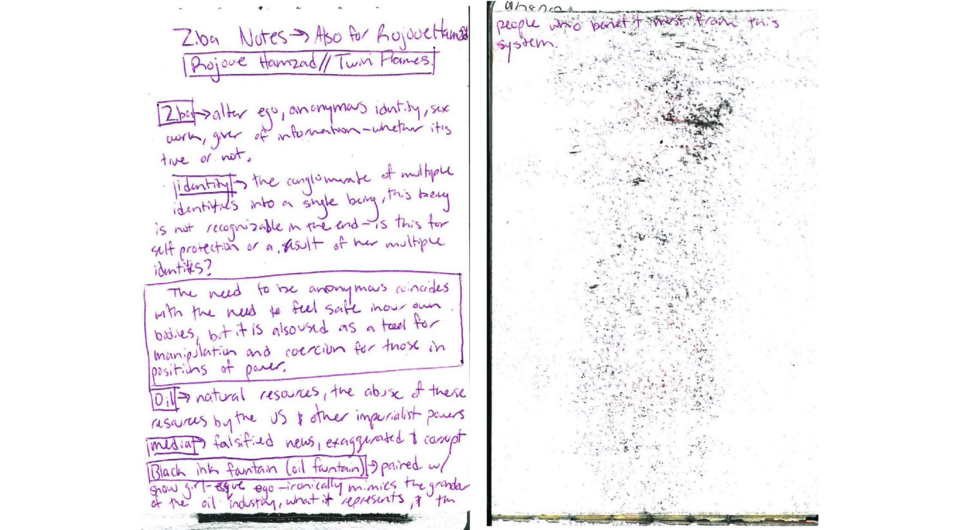 Ziba Notes → Also for Rojove Hamzad
Rojove Hamzad // Twin Flames
Ziba → alter ego, anonymous identity, sex
work, giver of information - whether it's
true or not.
identity → the conglomerate of multiple
identities into a single being, this being
is not recognizable in the end - is this for
self protection or a result of her multiple
identities?
The need to be anonymous coincides
with the need to feel safe in our own
bodies, but it is also used as a tool for
manipulation and coercion for those in
positions of power.
Oil → natural resources, the abuse of these
resources by the US & other imperialist powers
media → falsified news, exaggerated & corrupt
Black ink fountain (oil fountain) → paired w/
show girl-esque ego - ironically mimics the grandeur
of the oil industry, what it represents, & the
people who benefit most from this
system.